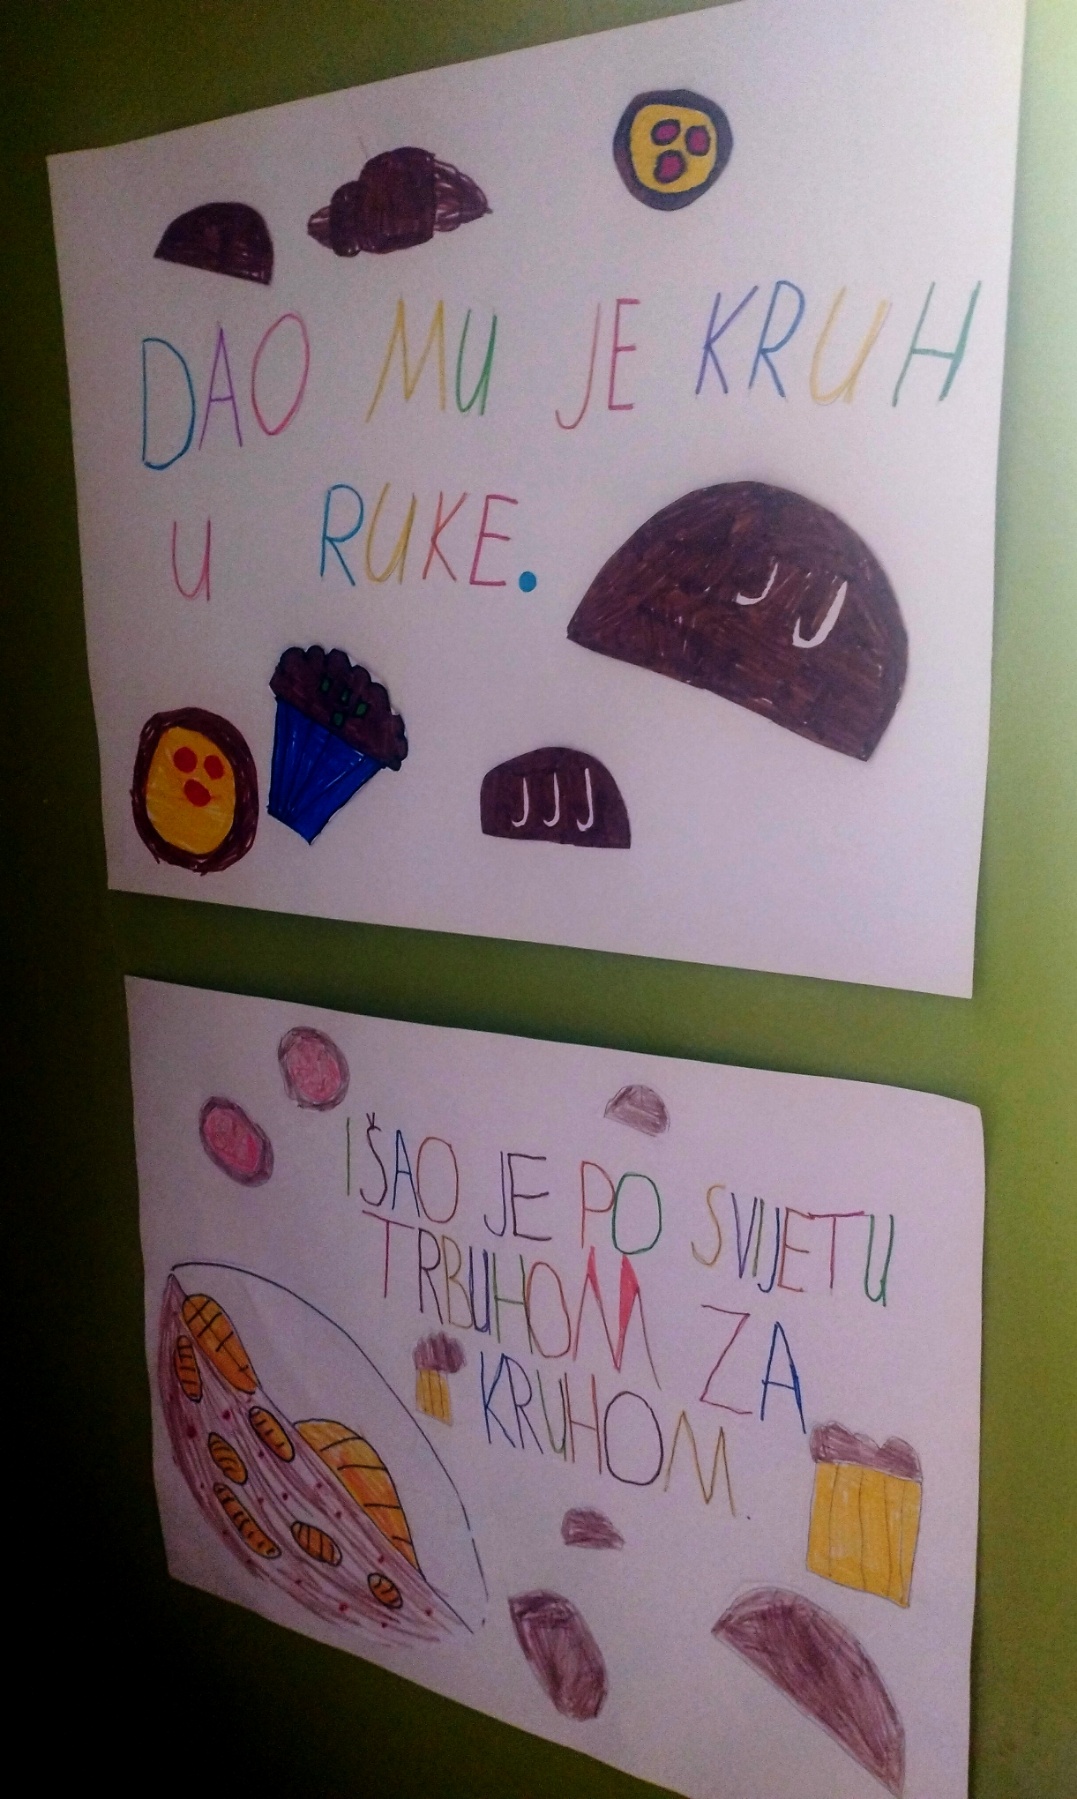 DAO MU JE KRUH
U RUKE.
IŠAO JE PO SVIJETU
TRBUHOM ZA
KRUHOM.